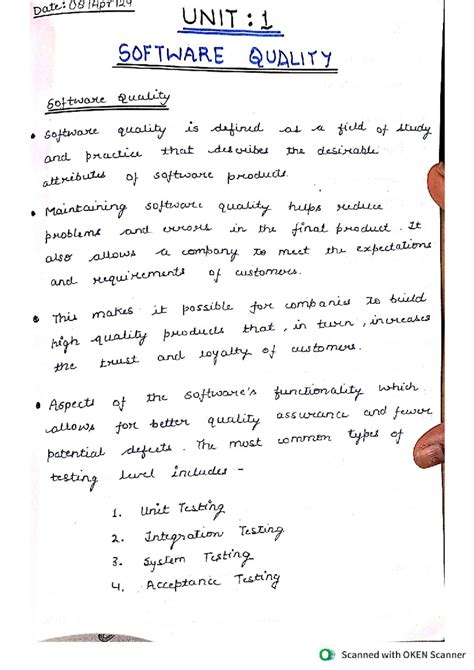 Date: 08/Apr/24
UNIT : 1
SOFTWARE QUALITY
Software Quality
• Software quality is defined as a field of study
and practice that describes the desirable
attributes of software products.
• Maintaining software quality helps reduce
problems and errors in the final product. It
also allows a company to meet the expectations
and requirements of customers.
• This makes it possible for companies to build
high quality products that, in turn, increases
the trust and loyalty of customers.
• Aspects of the software's functionality which
allows for better quality assurance and fewer
potential defects. The most common types of
testing level includes -
1. Unit Testing
2. Integration Testing
3. System Testing
4. Acceptance Testing
Scanned with OKEN Scanner